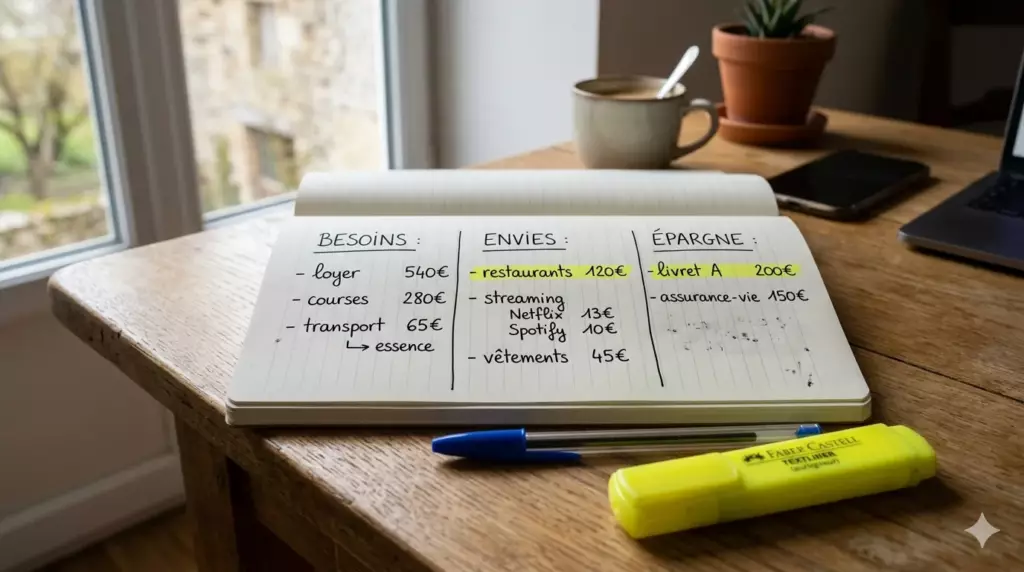 BESOINS :
- loyer 540€
- courses 280€
- transport 65€
↳ essence
ENVIES :
- restaurants 120€
- streaming
Netflix 13€
Spotify 10€
- vêtements 45€
ÉPARGNE :
- livret A 200€
- assurance-vie 150€
FABER CASTELL
TEXTLINER